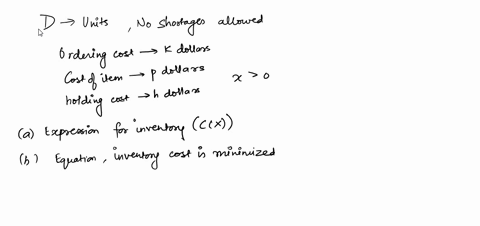 D → Units , No shortages allowed
Ordering cost → K dollars
Cost of item → p dollars
x > 0
holding cost → h dollars
(a) Expression for inventory (C(x))
(b) Equation, inventory cost is minimized